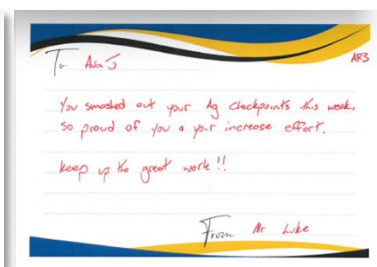 To Ava J
AR3
You smashed out your Ag checkpoints this week,
so proud of you & your increase effort.
keep up the great work!!
From Mr Luke